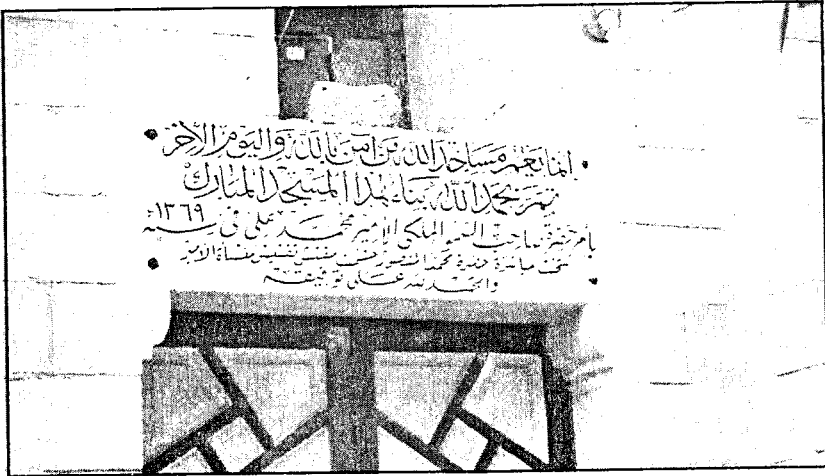 إنما يعمر مساجد الله من آمن بالله واليوم الآخر
تم بحمد الله بناء هذا المسجد المبارك
بأمر حضرة صاحب السمو الملكى الأمير محمد على فى سنة ١٣٦٩
تحت مباشرة حضرة محمد مفتش تفتيش منشأة الأمير
والحمد لله على توفيقه